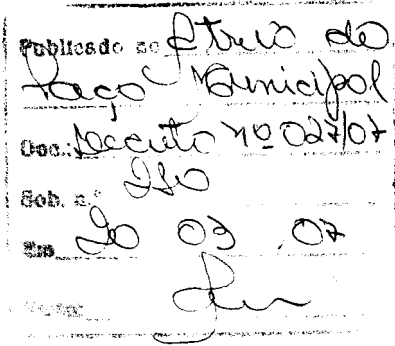 Publicado no Átrio do
Paço Municipal
Doc.: Decreto nº 027/07
Sob. n.º 210
Em 20 03 .07